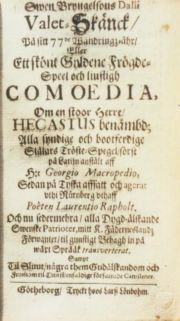 Swen Bryngelsons Dalli
Valet-Skänck/
På sitt 77de Wandringz-åhr/
Eller
Ett skönt Gyldene Frögde-
Speel och liufligh
COMOEDIA,
Om en stoor Herre/
HECASTUS benämbd;
Alla syndige och bootferdige
Siälars Tröste-Spegel först
på Latijn anstält aff
H:r Georgio Macropedio,
Sedan på Tyska affsatt och agerat
vthi Nürnberg vthaff
Poëten Laurentio Rapholt,
Och nu sedermehra/ alla Dygd-älskande
Swenske Patrioter, mitt K. Fäderneslandz
Förwanter/ til gunstigt Behagh in på
wårt Språåk transverterat.
Sampt
Til Slutet/ några them Gudälskandom och
Götheborg/ Tryckt hoos Lars Lönbohm.